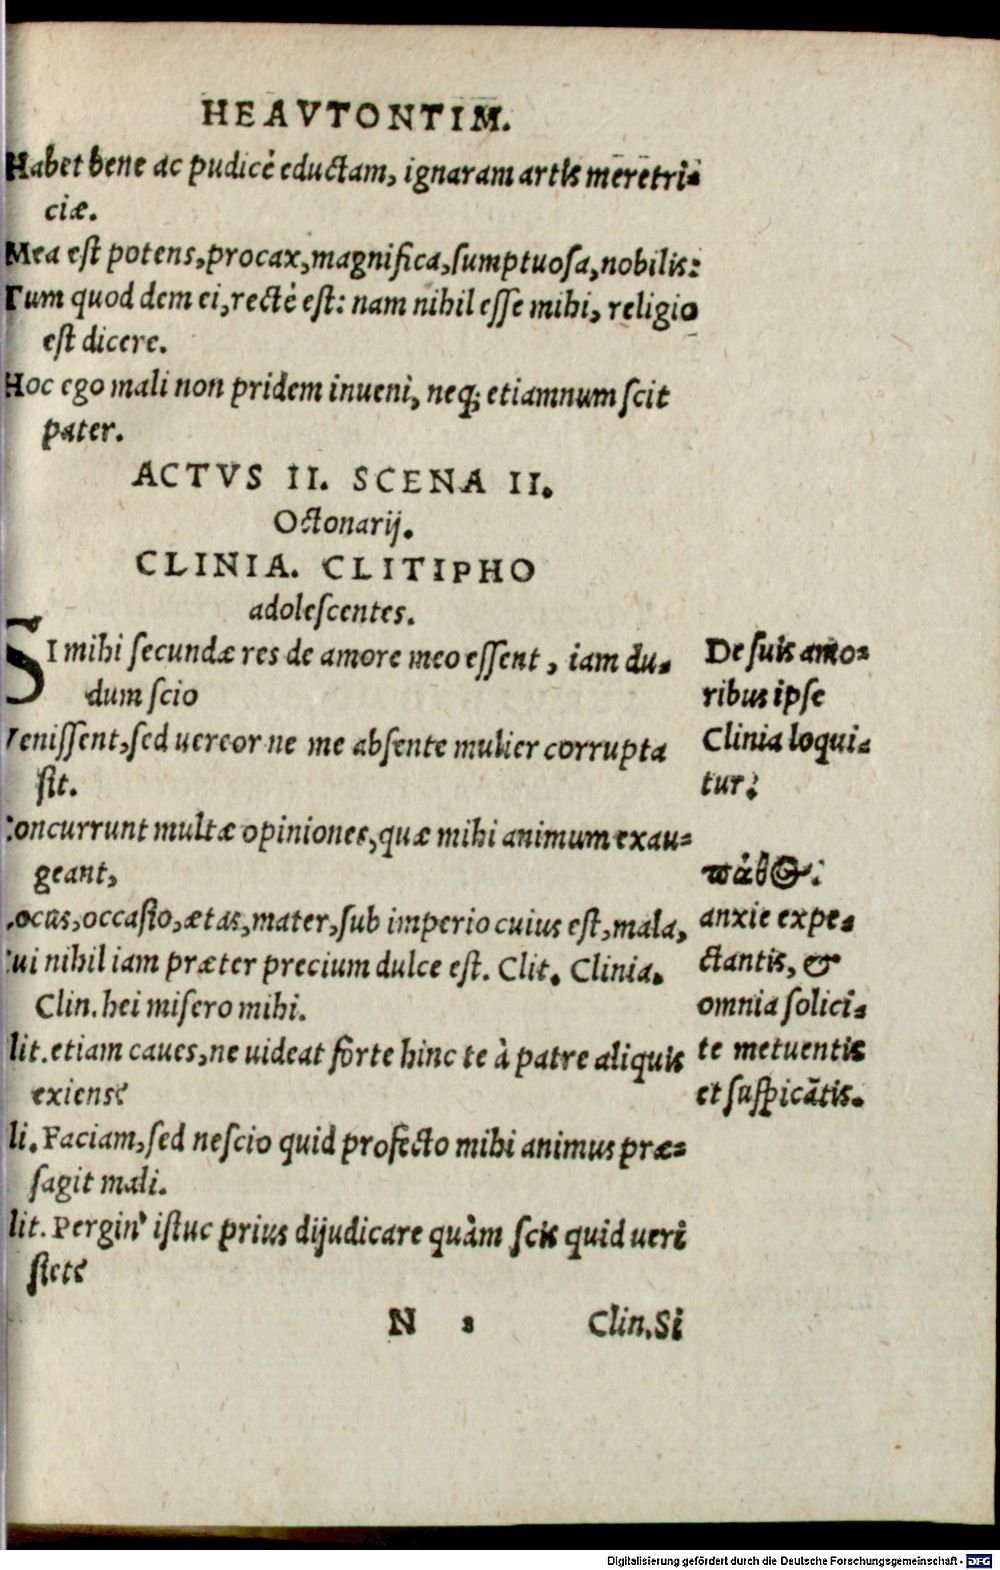 HEAVTONTIM.
Habet bene ac pudicè eductam, ignaram artis meretri-
ciæ.
Mea est potens, procax, magnifica, sumptuosa, nobilis:
Tum quod dem ei, rectè est: nam nihil esse mihi, religio
est dicere.
Hoc ego mali non pridem inueni, neq; etiamnum scit
pater.
ACTVS II. SCENA II.
Octonarij.
CLINIA. CLITIPHO
adolescentes.
SI mihi secundæ res de amore meo essent, iam du-
dum scio
Venissent, sed uereor ne me absente mulier corrupta
sit.
Concurrunt multæ opiniones, quæ mihi animum exau-
geant,
Locus, occasio, ætas, mater, sub imperio cuius est, mala,
Cui nihil iam præter precium dulce est. Clit. Clinia.
Clin. hei misero mihi.
lit. etiam caues, ne uideat forte hinc te à patre aliquis
exiens?
li. Faciam, sed nescio quid profecto mihi animus præ-
sagit mali.
lit. Pergin' istuc prius dijudicare quàm scis quid ueri
siet?
N 2 Clin. Si
De suis amo-
ribus ipse
Clinia loqui-
tur:
πάθος:
anxie expe-
ctantis, &
omnia solici-
te metuentis
et suspicātis.
Digitalisierung gefördert durch die Deutsche Forschungsgemeinschaft - DFG